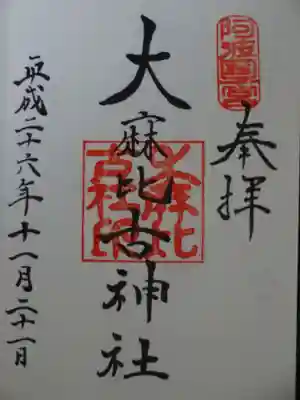 阿波一宮
奉拝
大麻比古神社
平成二十六年十一月二十一日